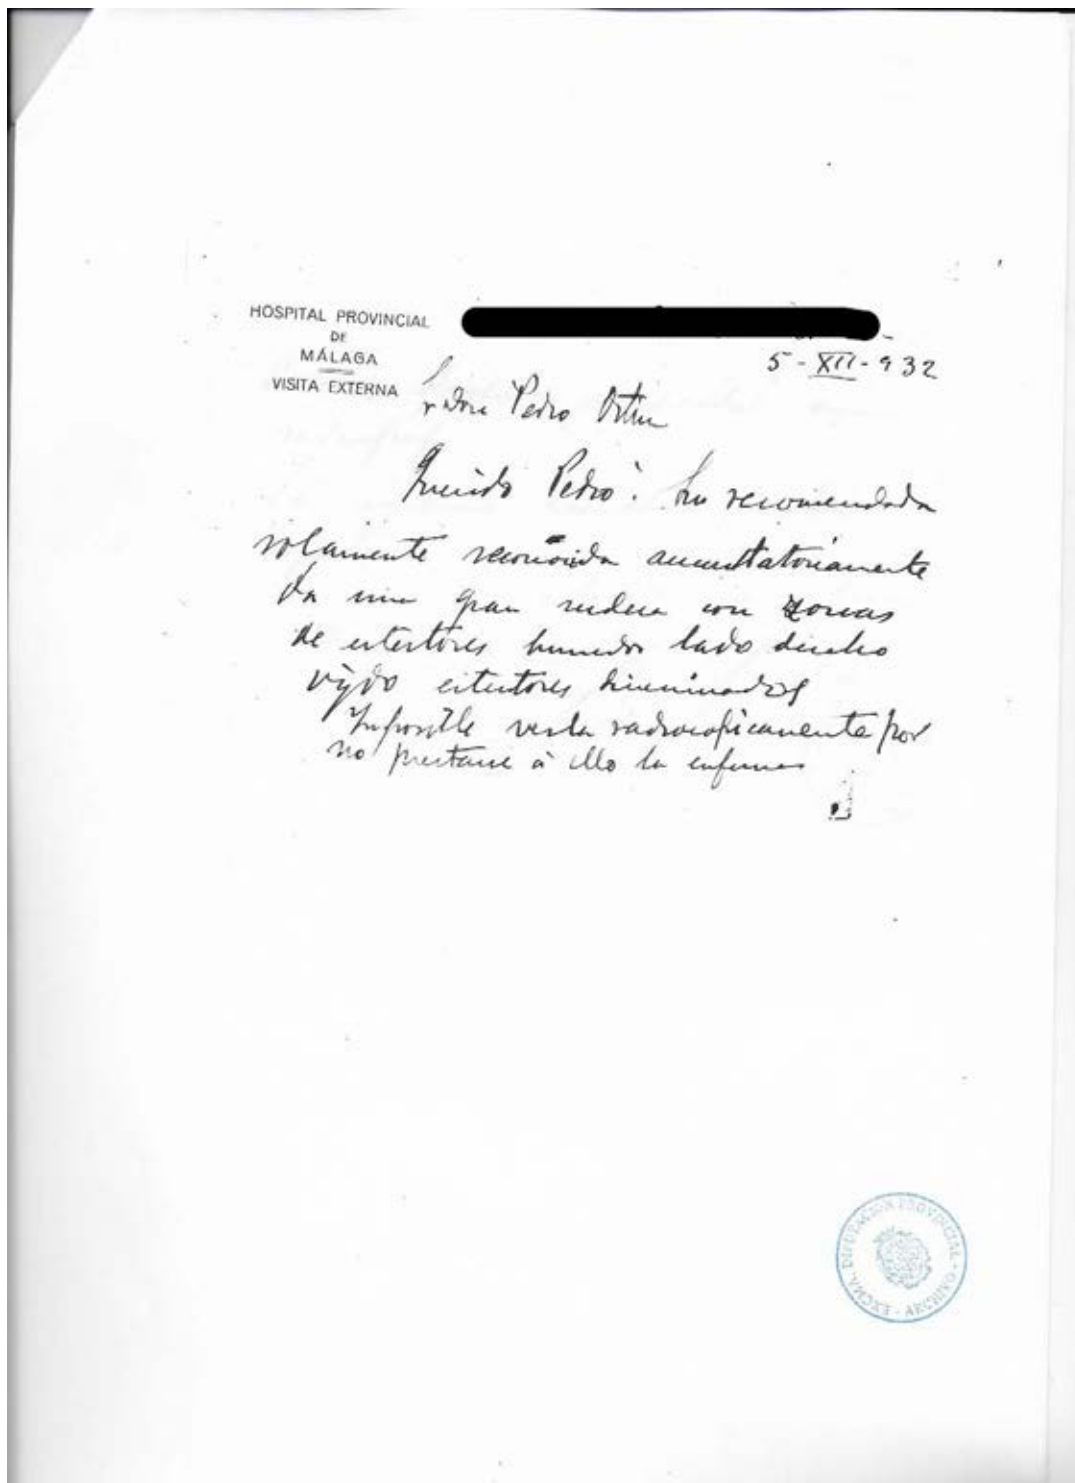 HOSPITAL PROVINCIAL
DE
MÁLAGA
VISITA EXTERNA
5-XII-932
Pedro
Querido Pedro: Su recomendada
solamente reconocida auscultatoriamente
da una gran rudeza con zonas
de estertores humedos lado derecho
y qdo estertores diseminados
Imposible verla radioscopicamente por
no prestarse á ello la enferma
EXCMA. DIPUTACION PROVINCIAL - ARCHIVO